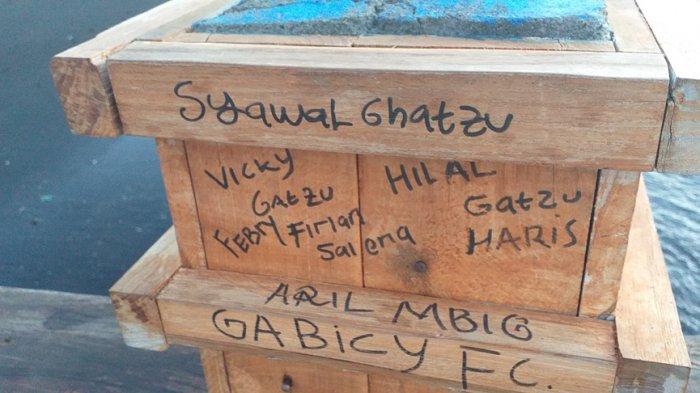 Syawal Ghatzu
VICKY
GAtzu
FEBRY Firian
Salena
HILAL
Gatzu
HARIS
ARIL MBIG
GABiCY FC.